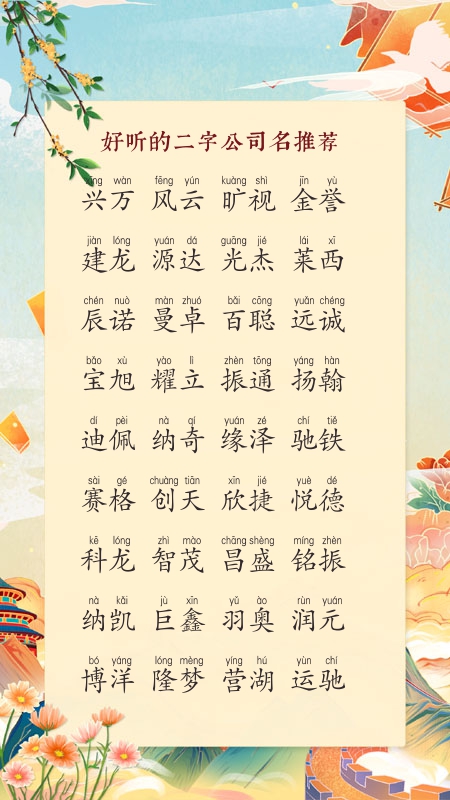 好听的二字公司名推荐
xīng wàn fēng yún kuàng shì jīn yù
兴万 风云 旷视 金誉
jiàn lóng yuán dá guāng jié lái xī
建龙 源达 光杰 莱西
chén nuò màn zhuó bǎi cōng yuǎn chéng
辰诺 曼卓 百聪 远诚
bǎo xù yào lì zhèn tōng yáng hàn
宝旭 耀立 振通 扬翰
dí pèi nà qí yuán zé chí tiě
迪佩 纳奇 缘泽 驰铁
sài gé chuàng tiān xīn jié yuè dé
赛格 创天 欣捷 悦德
kē lóng zhì mào chāng shèng míng zhèn
科龙 智茂 昌盛 铭振
nà kǎi jù xīn yǔ ào rùn yuán
纳凯 巨鑫 羽奥 润元
bó yáng lóng mèng yíng hú yùn chí
博洋 隆梦 营湖 运驰